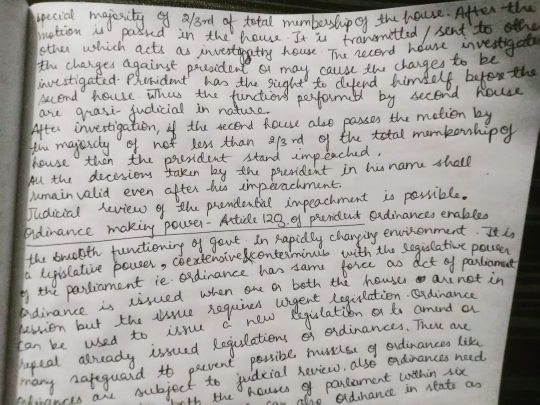 special majority of 2/3rd of total membership of the house. After the
motion is passed in the house. It is transmitted / sent to other
other which acts as investigatng house. The second house investigates
the charges against president or may cause the charges to be
investigated. President has the right to defend himself before the
second house. Thus the function performed by second house
are quasi-judicial in nature.
After investigation, if the second house also passes the motion by
the majority of not less than 2/3 rd of the total membership of
house then the president stand impeached.
All the decisions taken by the president in his name shall
remain valid even after his impeachment.
Judicial review of the presidential impeachment is possible.
Ordinance making power - Article 123, of president Ordinances enables
the smooth functioning of govt. in rapidly changing environment. It is
a legislative power, coextensive & conterminus with the legislative power
of the parliament ie. ordinance has same force as act of parliament
Ordinance is issued when one or both the houses are not in
session but the issue requires urgent legislation. Ordinance
can be used to issue a new legislation or to amend or
repeal already issued legislations or ordinances. There are
many safeguard to prevent possible misuse of ordinances like
Ordinances are subject to judicial review. also ordinances need
both the houses of parliament within six
can also ordinance in state as